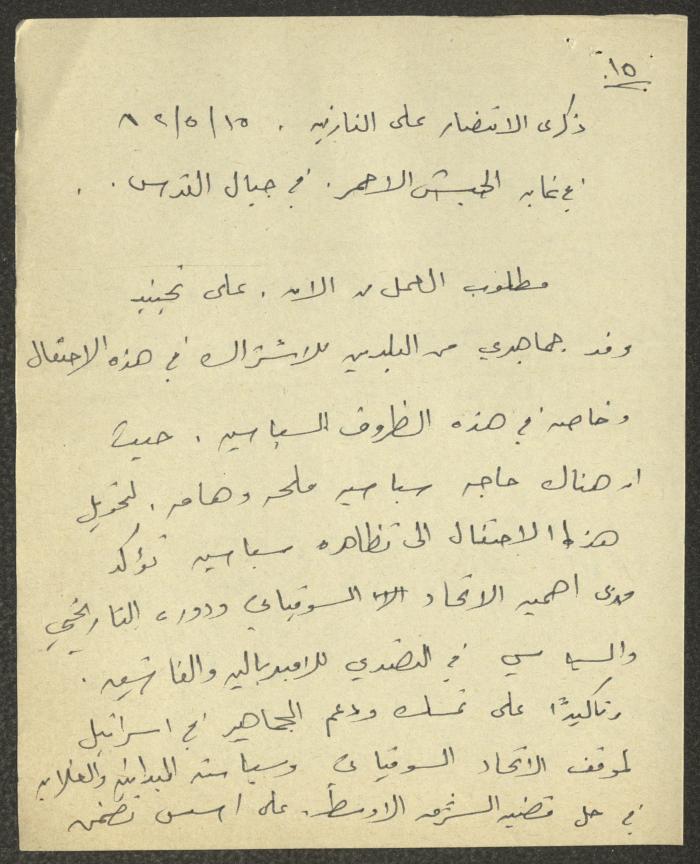 ١٥.
ذكرى الانتصار على النازيه . ١٥/٥/٨٢
في غابه الجيش الاحمر . في جبال القدس .
مطلوب العمل من الان . على تجنيد
وفد جماهيري من البلدين للاشتراك في هذه الاحتفال
وخاصه في هذه الظروف السياسيه . حيث
ان هناك حاجه سياسيه ملحه وهامه . لتحويل
هذا الاحتفال الى تظاهره سياسيه تؤكد
مدى اهميه الاتحاد السوفياتي ودوره التاريخي
والسياسي في التصدي للامبرياليه والفاشيه .
وتاكيدًا على تمسك ودعم الجماهير في اسرائيل
لموقف الاتحاد السوفياتي وسياسته المبدئيه والعقلانيه
في حل قضيه الشرق الاوسط . على اسس تضمن